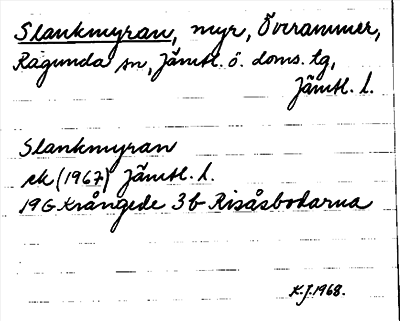 Slankmyran, myr, Överammer,
Ragunda sn, Jämtl. ö. doms. tg,
Jämtl. l.
Slankmyran
ek (1967) Jämtl. l.
19G Krångede 3b Risåsbodarna
K.J. 1968.